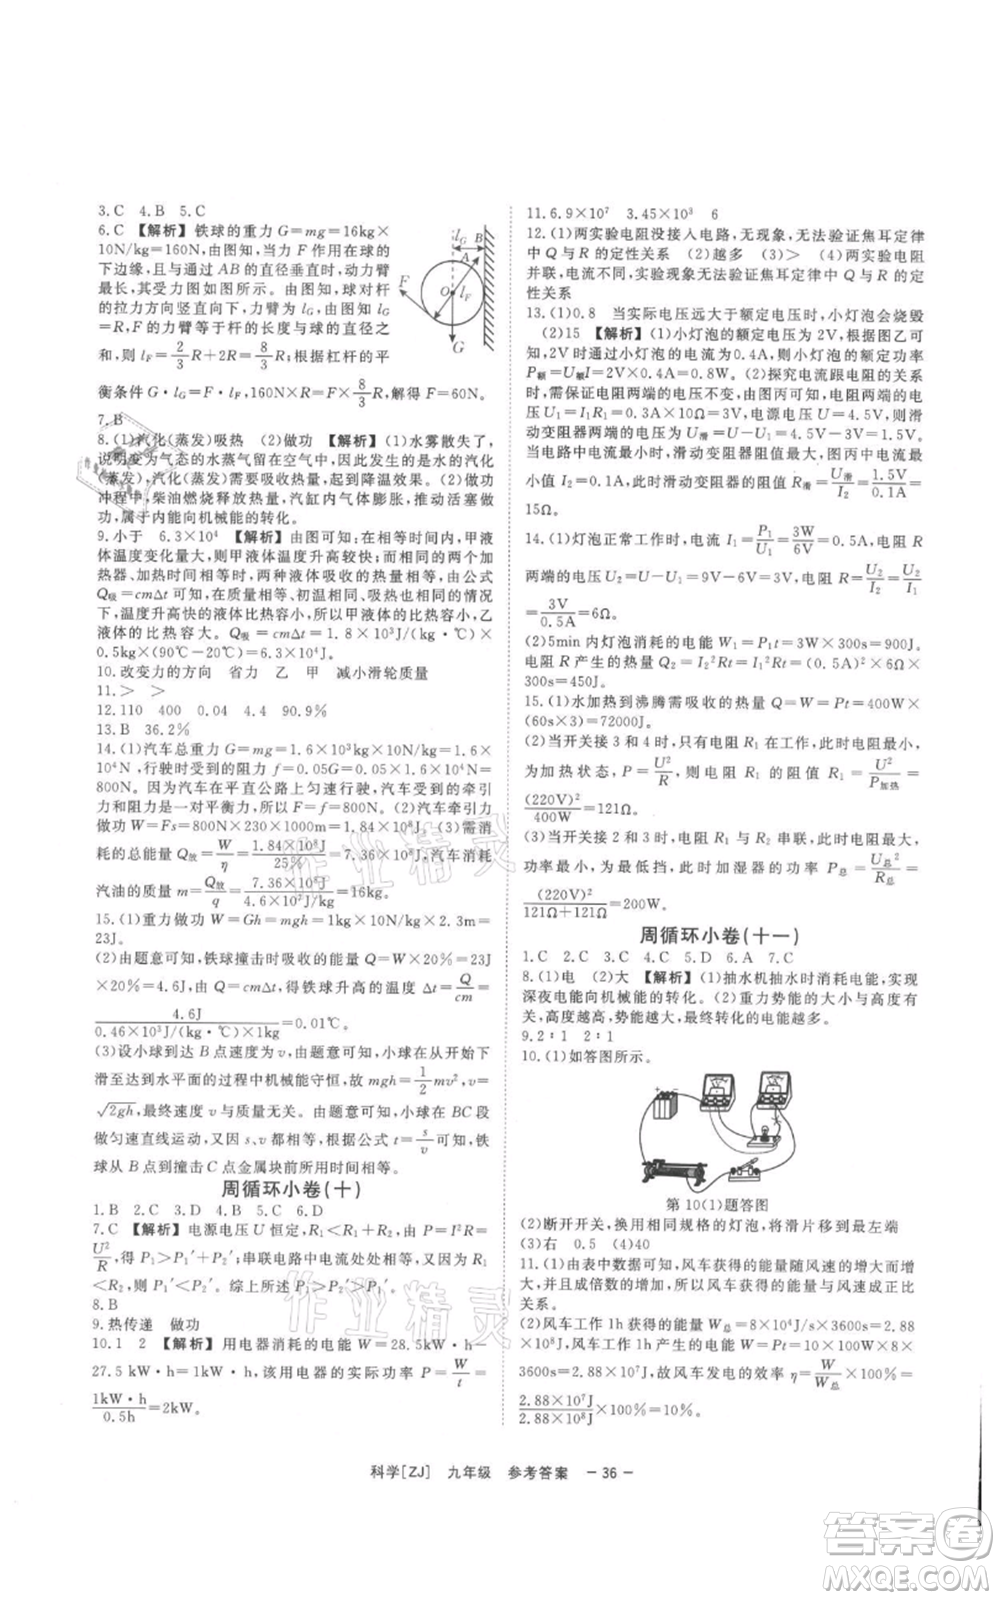 3.C 4.B 5.C
6.C 【解析】铁球的重力 G=mg=16kg×
10N/kg=160N,由图知,当力 F 作用在球的
下边缘,且与通过 AB 的直径垂直时,动力臂
最长,其受力图如图所示。由图知,球对杆
的拉力方向竖直向下,力臂为 lG,由图知 lG
=R,F 的力臂等于杆的长度与球的直径之
和,则 lF=2/3R+2R=8/3R,根据杠杆的平
衡条件 G·lG=F·lF,160N×R=F×8/3R,解得 F=60N。
7.B
8.(1)汽化(蒸发)吸热 (2)做功 【解析】(1)水雾散失了,
说明变为气态的水蒸气留在空气中,因此发生的是水的汽化
(蒸发),汽化(蒸发)需要吸收热量,起到降温效果。(2)做功
冲程中,柴油燃烧释放热量,汽缸内气体膨胀,推动活塞做
功,属于内能向机械能的转化。
9.小于 6.3×10⁴ 【解析】由图可知:相同时间内,甲液体
温度变化量大,则甲液体温度升高较快;由于用相同的两个加
热器、相同时间,两种液体吸收的热量相同,由公式
Q吸=cmΔt 可知,在质量、初温和吸收热量相同的情况下,
温度升高快的液体比热容小,所以甲液体的比热容小,乙
液体的比热容大。Q吸=cmΔt=1.8×10³J/(kg·℃)×
0.5kg×(90℃-20℃)=6.3×10⁴J。
10.改变力的方向 省力 乙 甲 减小滑轮质量
11.> >
12.110 400 0.04 4.4 90.9%
13.B 36.2%
14.(1)汽车总重力 G=mg=1.6×10³kg×10N/kg=1.6×10⁴
N,行驶时受到的阻力 f=0.05G=0.05×1.6×10⁴N=
800N。因为汽车在平直公路上匀速行驶,汽车受到的牵引
力和阻力为一对平衡力,所以 F=f=800N。(2)汽车牵引力
做功 W=Fs=800N×230×1000m=1.84×10⁸J (3)需消
耗的总能量 Q放=W/η=1.84×10⁸J/25%=7.36×10⁸J,汽车消耗
汽油的质量 m=Q放/q=7.36×10⁸J/4.6×10⁷J/kg=16kg。
15.(1)重力做功 W=Gh=mgh=1kg×10N/kg×2.3m=
23J。
(2)由题意可知,铁球撞击时吸收的能量 Q=W×20%=23J
×20%=4.6J,由题意可得:铁球升高的温度 Δt=Q/cm=
4.6J/0.46×10³J/(kg·℃)×1kg=0.01℃。
(3)设小球到达 B 点速度为 v,由题意可知,小球从一定高度
滑至达到水平面的过程中机械能守恒,故 mgh=1/2mv²,v=
√2gh,最终速度 v 与质量无关。由题意可知,小球在 BC 段
做匀速直线运动,又因 s、v 都相等,根据公式 t=s/v 可知,铁
球从 B 点到撞击 C 点金属块前所用时间一定相等。
周循环小卷(十)
1.B 2.C 3.D 4.A 5.C 6.D
7.C 【解析】电源电压 U 恒定,R₁<R₂,由 P=I²R=
U²/R,得 P₁>P₁′=P₂′;串联电路中电流处处相等,又 R₁
<R₂,则 P₁′<P₂′。综上所述 P₁>P₂>P₂′>P₁′。
8.B
9.热传递 做功
10.1 2 【解析】用电器消耗的电能 W=28.5kW·h-
27.5kW·h=1kW·h,该用电器的实际功率 P=W/t=
1kW·h/0.5h=2kW。
11.6.9×10⁷ 3.45×10³ 6
12.(1)两实验电阻没接入电路,无现象,无法验证焦耳定律
中 Q 与 R 的定性关系 (2)越多 (3)> 两实验电阻
并联,电流不同,实验现象无法验证焦耳定律中 Q 与 R 的定
性关系
13.(1)0.8 当实际电压远大于额定电压时,小灯泡会烧毁
(2)15 【解析】(1)小灯泡的额定电压为 2V,根据图乙可知,
2V 时通过小灯泡的电流为 0.4A,则小灯泡的额定功率
P额=U额I=2V×0.4A=0.8W。(2)探究电流与电阻的关系
时,需保证电阻两端的电压不变,由图丙可知,电阻两端的电压
U=I₁R₁=0.3A×10Ω=3V,电源电压为 4.5V,所以滑动
变阻器两端的电压为 U滑=U电源-U=4.5V-3V=1.5V。
当电路中电流最小时,滑动变阻器的电阻最大,由图知电流最
小值 I₂=0.1A,所以,滑动变阻器的阻值 R滑=U滑/I₂=1.5V/0.1A=
15Ω。
14.(1)灯泡正常工作时,电流 I₁=P₁/U₁=3W/6V=0.5A,电阻 R
两端的电压 U₂=U-U₁=9V-6V=3V,电阻 R=U₂/I₂=U₂/I₁
=3V/0.5A=6Ω。
(2)5min 内灯泡消耗的电能 W₁=P₁t=3W×300s=900J。
电阻 R 产生的热量 Q₂=I₂²Rt=I₁²Rt=(0.5A)²×6Ω×
300s=450J。
15.(1)水加热到沸腾需吸收的热量 Q=W=Pt=400W×
(60s×3)=72000J。
(2)当开关接 3 和 4 时,只有电阻 R₁ 在工作,此时电阻最小,
为加热状态,P=U²/R,则电阻 R₁ 的阻值 R₁=U²/P加热=
(220V)²/400W=121Ω。
(3)当开关接 2 和 3 时,电阻 R₁ 与 R₂ 串联,此时电阻最大,
功率最小,为低挡,此时加湿器的功率:P总=U总²/R总=
(220V)²/121Ω+121Ω=200W。
周循环小卷(十一)
1.C 2.C 3.C 4.C 5.D 6.A 7.C
8.(1)电 (2)大 【解析】(1)抽水机抽水时消耗电能,实现
深夜电能向机械能的转化。(2)重力势能的大小与高度有
关,高度越高,势能越大,最终转化的电能越多。
9.2∶1 2∶1
10.(1)如答图所示。
第 10(1)题答图
(2)断开开关,换用相同规格的灯泡,将滑片移到最左端
(3)右 0.5 (4)40
11.(1)由表中数据可知,风车获得的能量随风速的增大而增
大,且成倍数的增加,所以风车获得的能量与风速成正比
关系。
(2)风车工作 1h 获得的能量 W总=80000J/s×3600s=2.88
×10⁸J,风车工作 1h 产生的电能 W=Pt=8×10³W×
3600s=2.88×10⁷J,故风车发电的效率 η=W/W总=
2.88×10⁷J/2.88×10⁸J×100%=10%。
科学[ZJ] 九年级 参考答案 -36-
作业精灵
作业精灵
答案圈
MXQE.COM